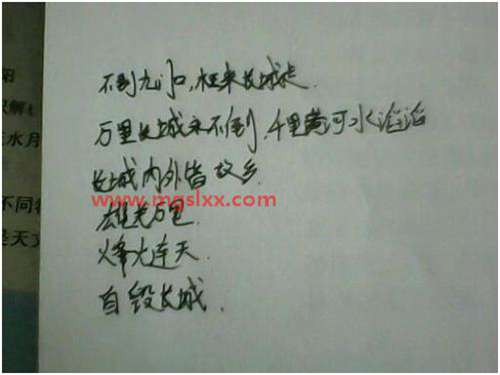 不到九门口,枉来长城走.
万里长城永不倒,千里黄河水滔滔
长城内外皆故乡.
www.mgslxx.com
雄关万里.
烽火连天.
自毁长城.
阳
误解
三水月
不同
是天文